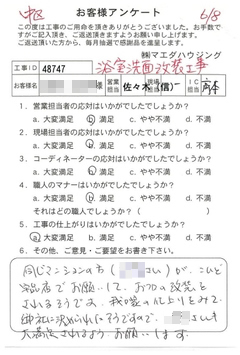 中区 6/8
お客様アンケート
この度は工事のご用命を頂きありがとうございました。お手数ですがご記入頂き、ご返送頂きますようお願い申し上げます。
ご返送頂いた方から、毎月抽選で感謝品を進呈します。
㈱マエダハウジング
工事ID 48747 浴室洗面改装工事
お客様名 様 営業担当 佐々木(信) 現場担当 CO担当
1. 営業担当者の応対はいかがでしたでしょうか？
a. 大変満足 b. 満足 c. やや不満 d. 不満
2. 現場担当者の応対はいかがでしたでしょうか？
a. 大変満足 b. 満足 c. やや不満 d. 不満
3. コーディネーターの応対はいかがでしたでしょうか？
a. 大変満足 b. 満足 c. やや不満 d. 不満
4. 職人のマナーはいかがでしたでしょうか？
a. 大変満足 b. 満足 c. やや不満 d. 不満
それはどの職人でしょうか？（ ）
5. 工事の仕上がりはいかがでしたでしょうか？
a. 大変満足 b. 満足 c. やや不満 d. 不満
6. その他、ご意見・ご要望をお書き下さい。
同じマンションのお( さん)が、
でお願いして、の改装を
されるそうです。我家の仕上りをみて
御社に決められたそうですので、さんも
大満足されるよう お願いします。